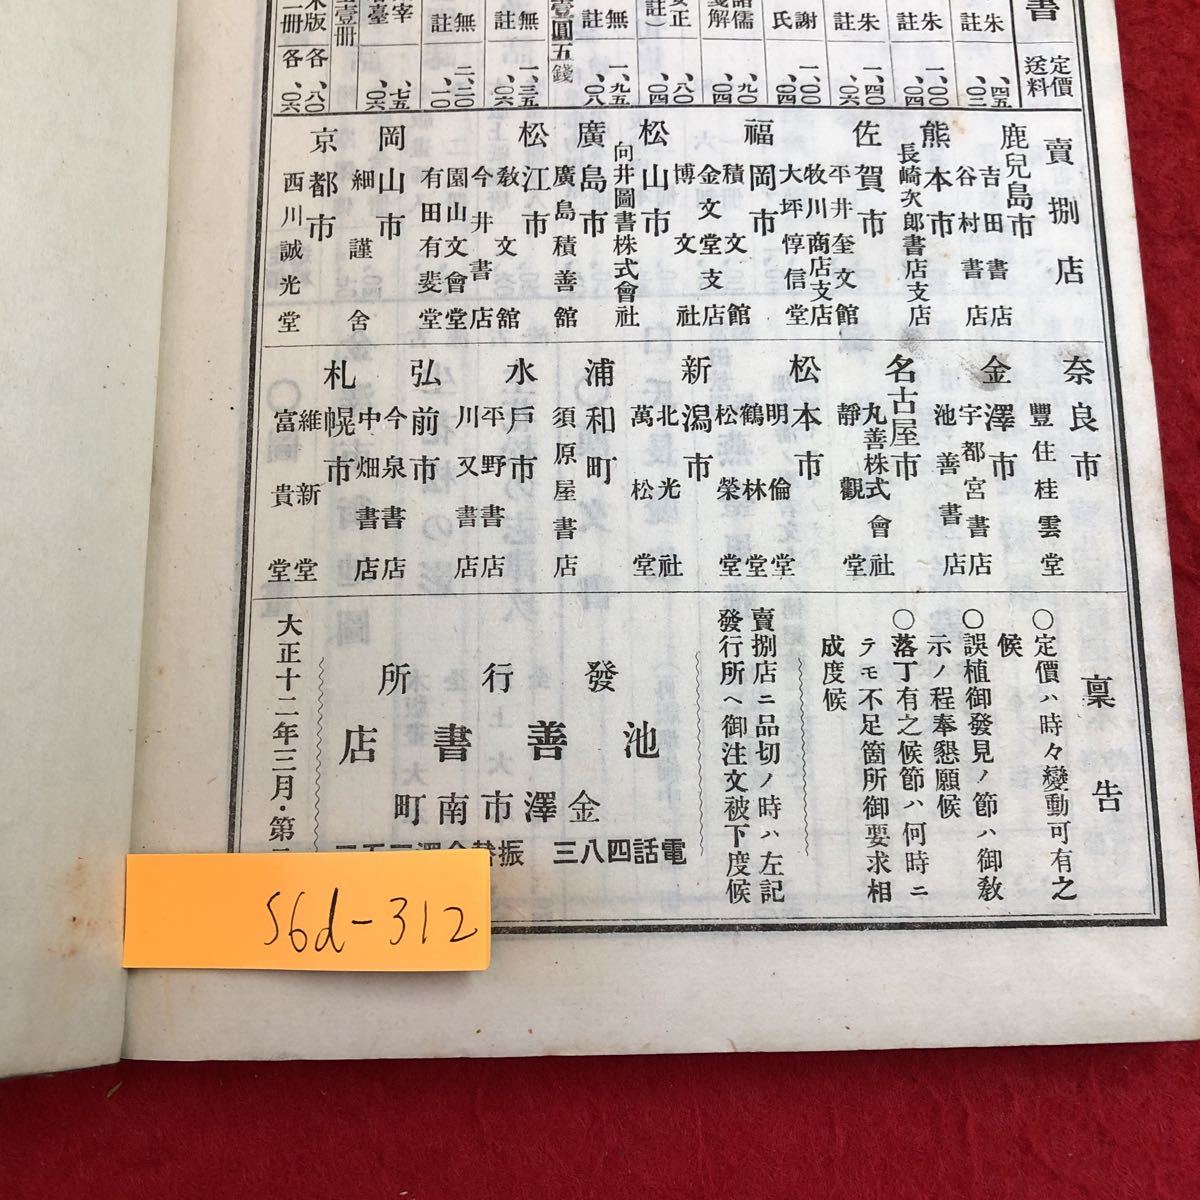 書
定價
送料
朱
註
、四五
、〇二
朱
註
一、〇〇
、〇四
朱
註
一、四〇
、〇六
謝
氏
一、〇〇
、〇四
諸儒
箋解
、九〇
、〇四
安正
註）
、八〇
、〇四
無
註
一、九五
、〇八
壹圓五錢
無
註
一、三五
、〇六
無
註
二、二〇
、一〇
宰
臺
、七五
、〇六
木版各、八〇
二册各、〇六
壹册
賣捌店
鹿兒島市
吉田書店
谷村書店
熊本市
長崎次郎書店支店
佐賀市
平井奎文館
牧川商店支店
大坪惇信堂
福岡市
積文館
金文堂支店
博文社
松山市
向井圖書株式會社
廣島市
廣島積善館
松江市
敎文館
今井書店
園山文會堂
有田有斐堂
岡山市
細謹舍
京都市
西川誠光堂
奈良市
豐住桂雲堂
金澤市
宇都宮書店
池善書店
名古屋市
丸善株式會社
靜觀堂
松本市
明倫堂
鶴林堂
松榮堂
新潟市
北光社
萬松堂
浦和町
須原屋書店
水戶市
平野書店
川又書店
弘前市
今泉書店
中畑書店
札幌市
維新堂
富貴堂
稟告
〇定價ハ時々變動可有之
候
〇誤植御發見ノ節ハ御敎
示ノ程奉懇願候
〇落丁有之候節ハ何時ニ
テモ不足箇所御要求相
成度候
賣捌店ニ品切ノ時ハ左記
發行所ヘ御注文被下度候
發行所
池善書店
金澤市南町
電話四八三
振替金澤
大正十二年三月・第
S6d-312